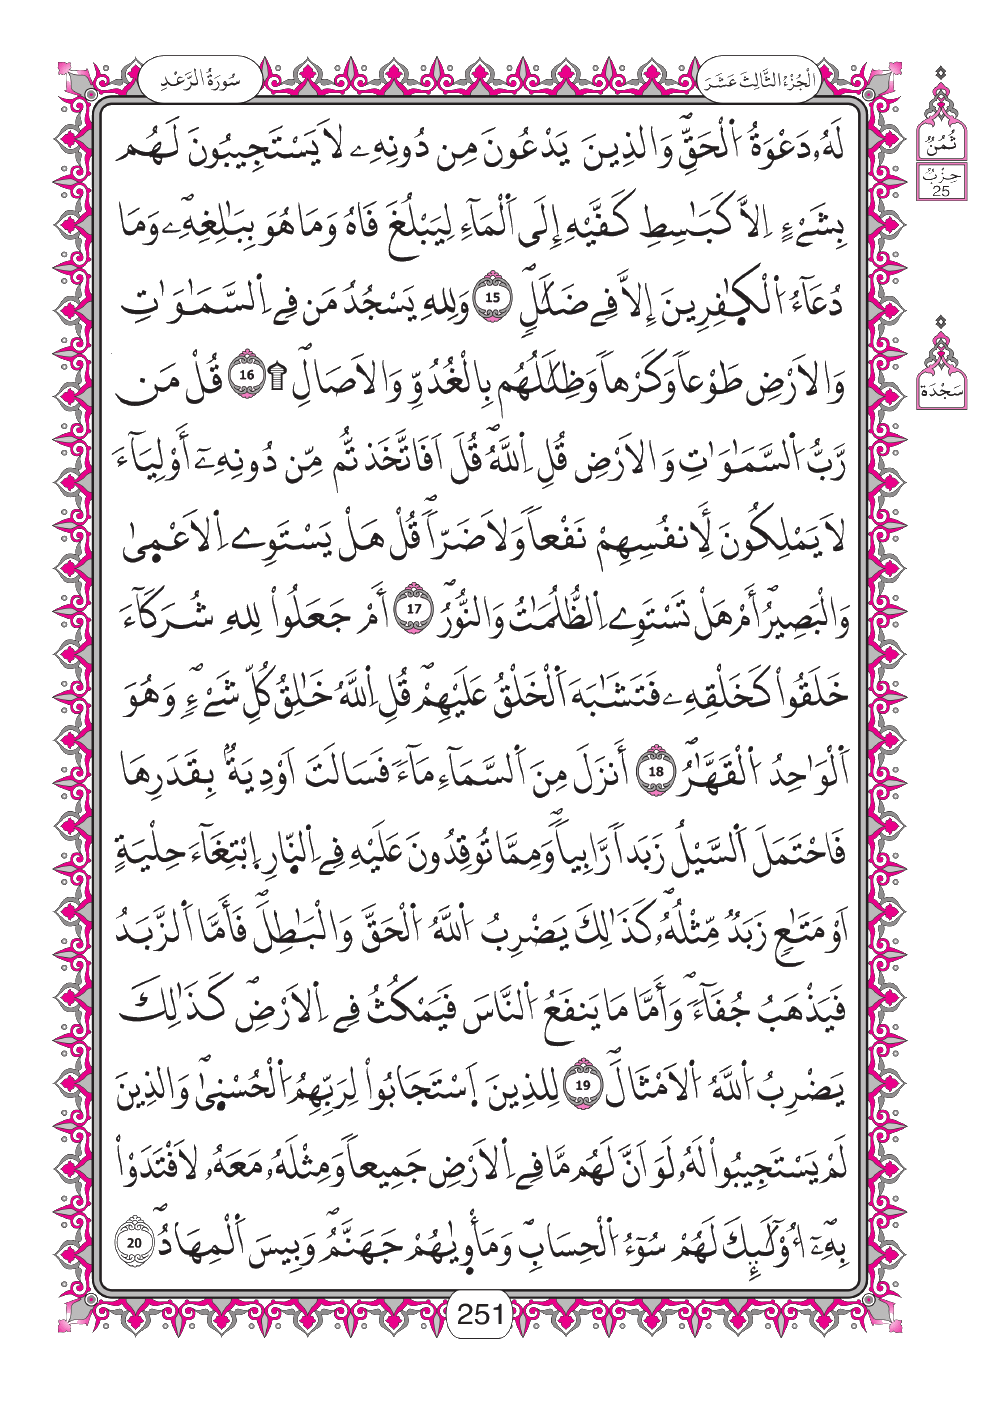 سُورَةُ الرَّعْدِ
الْجُزْءُ الثَّالِثَ عَشَرَ
ثُمُنُ
حِزْبُ
25
لَهُۥ دَعْوَةُ اُ۬لْحَقِّۖ وَالذِينَ يَدْعُونَ مِن دُونِهِۦ لَا يَسْتَجِيبُونَ لَهُم
بِشَےْءٍ اِلَّا كَبَٰسِطِ كَفَّيْهِ إِلَى اَ۬لْمَآءِ لِيَبْلُغَ فَاهُ وَمَا هُوَ بِبَٰلِغِهِۦۖ وَمَا
دُعَآءُ اُ۬لْكٰ۪فِرِينَ إِلَّا فِے ضَلَٰلٍۖ 15 وَلِلهِ يَسْجُدُ مَن فِے اِ۬لسَّمَٰوَٰتِ
سَجْدَة
وَالَارْضِ طَوْعاٗ وَكَرْهاٗ وَظِلَٰلُهُم بِالْغُدُوِّ وَالَاصَالِۖ ۩ 16 قُلْ مَن
رَّبُّ اُ۬لسَّمَٰوَٰتِ وَالَارْضِ قُلِ اِ۬للَّهُۖ قُلَ اَفَاتَّخَذتُّم مِّن دُونِهِۦٓ أَوْلِيَآءَ
لَا يَمْلِكُونَ لِأَنفُسِهِمْ نَفْعاٗ وَلَا ضَرّاٗۖ قُلْ هَلْ يَسْتَوِے اِ۬لَاعْم۪ىٰ
وَالْبَصِيرُۖ أَمْ هَلْ تَسْتَوِے اِ۬لظُّلُمَٰتُ وَالنُّورُۖ 17 أَمْ جَعَلُواْ لِلهِ شُرَكَآءَ
خَلَقُواْ كَخَلْقِهِۦ فَتَشَٰبَهَ اَ۬لْخَلْقُ عَلَيْهِمْۖ قُلِ اِ۬للَّهُ خَٰلِقُ كُلِّ شَےْءٖۖ وَهُوَ
اَ۬لْوَٰحِدُ اُ۬لْقَهَّٰرُۖ 18 أَنزَلَ مِنَ اَ۬لسَّمَآءِ مَآءٗ فَسَالَتَ اَوْدِيَةُۢ بِقَدَرِهَا
فَاحْتَمَلَ اَ۬لسَّيْلُ زَبَداٗ رَّابِياٗۖ وَمِمَّا تُوقِدُونَ عَلَيْهِ فِے اِ۬لنّ۪ارِ اِ۪بْتِغَآءَ حِلْيَةٍ
اَوْ مَتَٰعٖ زَبَدٞ مِّثْلُهُۥۖ كَذَٰلِكَ يَضْرِبُ اُ۬للَّهُ اُ۬لْحَقَّ وَالْبَٰطِلَۖ فَأَمَّا اَ۬لزَّبَدُ
فَيَذْهَبُ جُفَآءٗۖ وَأَمَّا مَا يَنفَعُ اُ۬لنَّاسَ فَيَمْكُثُ فِے اِ۬لَارْضِۖ كَذَٰلِكَ
يَضْرِبُ اُ۬للَّهُ اُ۬لَامْثَالَۖ 19 لِلذِينَ اَ۪سْتَجَابُواْ لِرَبِّهِمُ اُ۬لْحُسْن۪ىٰۖ وَالذِينَ
لَمْ يَسْتَجِيبُواْ لَهُۥ لَوَ اَنَّ لَهُم مَّا فِے اِ۬لَارْضِ جَمِيعاٗ وَمِثْلَهُۥ مَعَهُۥ لَافْتَدَوْاْ
بِهِۦٓۖ أُوْلَٰٓئِكَ لَهُمْ سُوٓءُ اُ۬لْحِسَابِۖ وَمَأْو۪يٰهُمْ جَهَنَّمُۖ وَبِيسَ اَ۬لْمِهَادُۖ 20
251